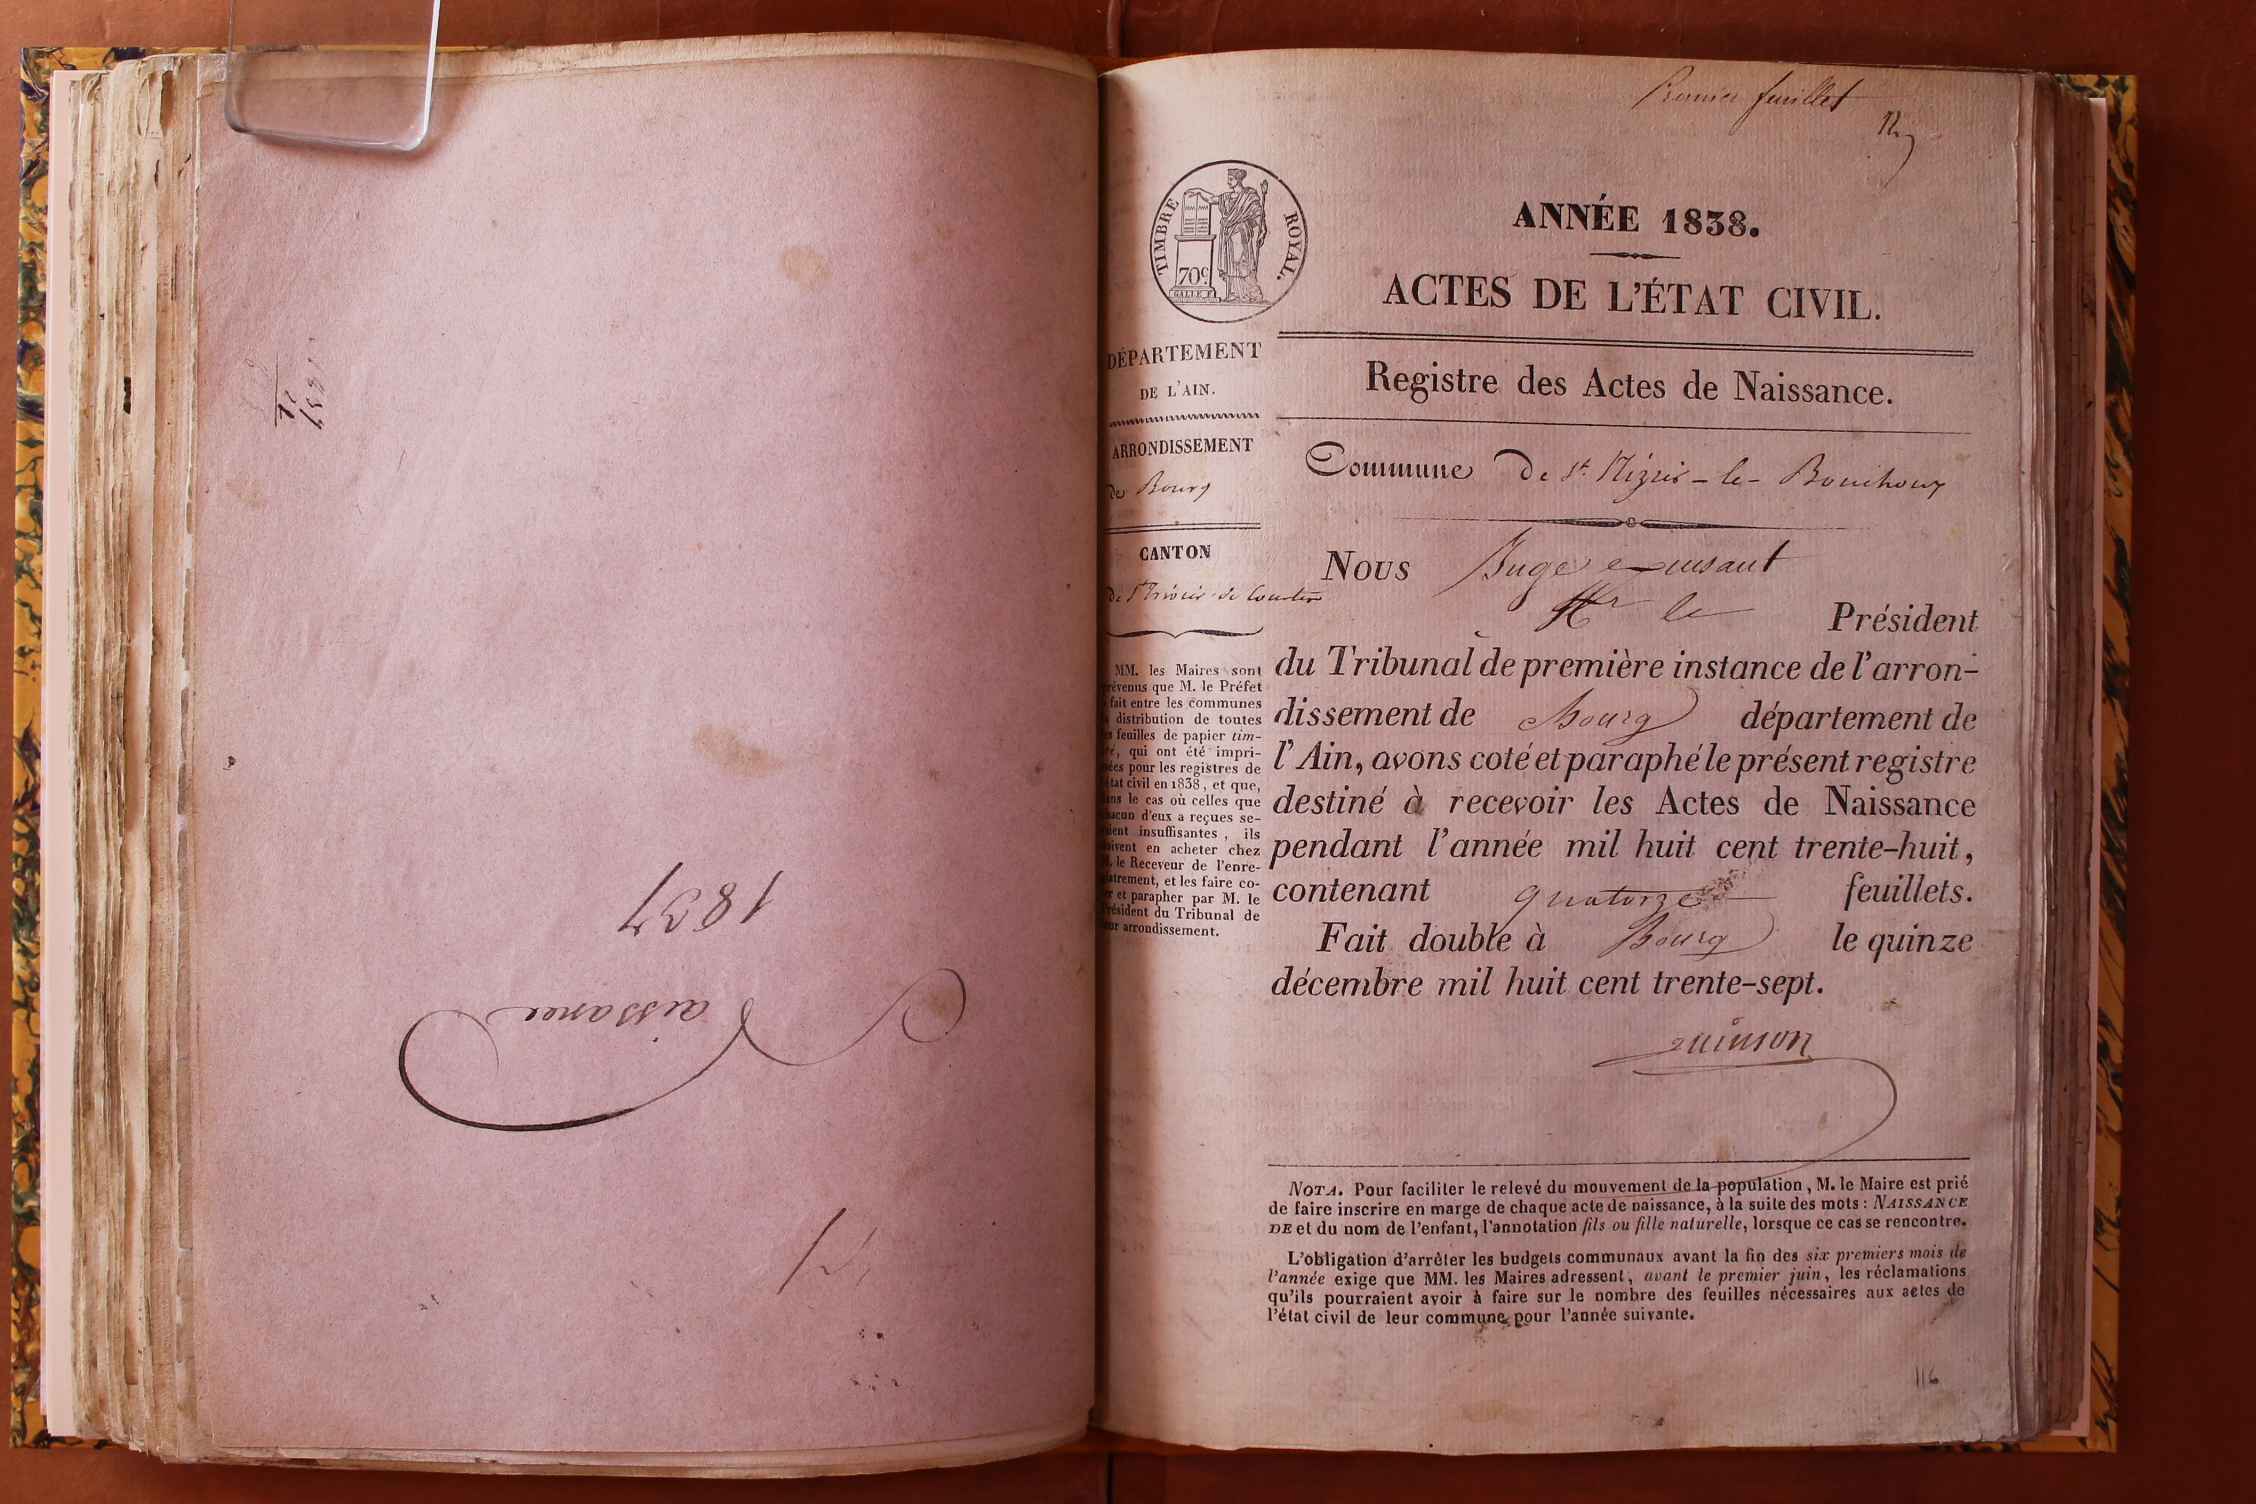 1837
Naissance
1837
Premier feuillet
TIMBRE ROYAL.
70c.
ANNÉE 1838.
ACTES DE L'ÉTAT CIVIL.
DÉPARTEMENT
DE L'AIN.
ARRONDISSEMENT
de Bourg
CANTON
MM. les Maires sont
prévenus que M. le Préfet
fait entre les communes
distribution de toutes
feuilles de papier tim-
qui ont été impri-
pour les registres de
civil en 1838, et que,
le cas où celles que
d'eux a reçues se-
insuffisantes, ils
en acheter chez
le Receveur de l'enre-
et les faire co-
et parapher par M. le
Président du Tribunal de
arrondissement.
Registre des Actes de Naissance.
Commune De St. Nizier-le-Bouchoux
Nous Juge
Mr le Président
du Tribunal de première instance de l'arron-
dissement de Bourg département de
l'Ain, avons coté et paraphé le présent registre
destiné à recevoir les Actes de Naissance
pendant l'année mil huit cent trente-huit,
contenant quatorze feuillets.
Fait double à Bourg le quinze
décembre mil huit cent trente-sept.
quinson
NOTA. Pour faciliter le relevé du mouvement de la population, M. le Maire est prié
de faire inscrire en marge de chaque acte de naissance, à la suite des mots : NAISSANCE
DE et du nom de l'enfant, l'annotation fils ou fille naturelle, lorsque ce cas se rencontre.
L'obligation d'arrêter les budgets communaux avant la fin des six premiers mois de
l'année exige que MM. les Maires adressent, avant le premier juin, les réclamations
qu'ils pourraient avoir à faire sur le nombre des feuilles nécessaires aux actes de
l'état civil de leur commune pour l'année suivante.
116